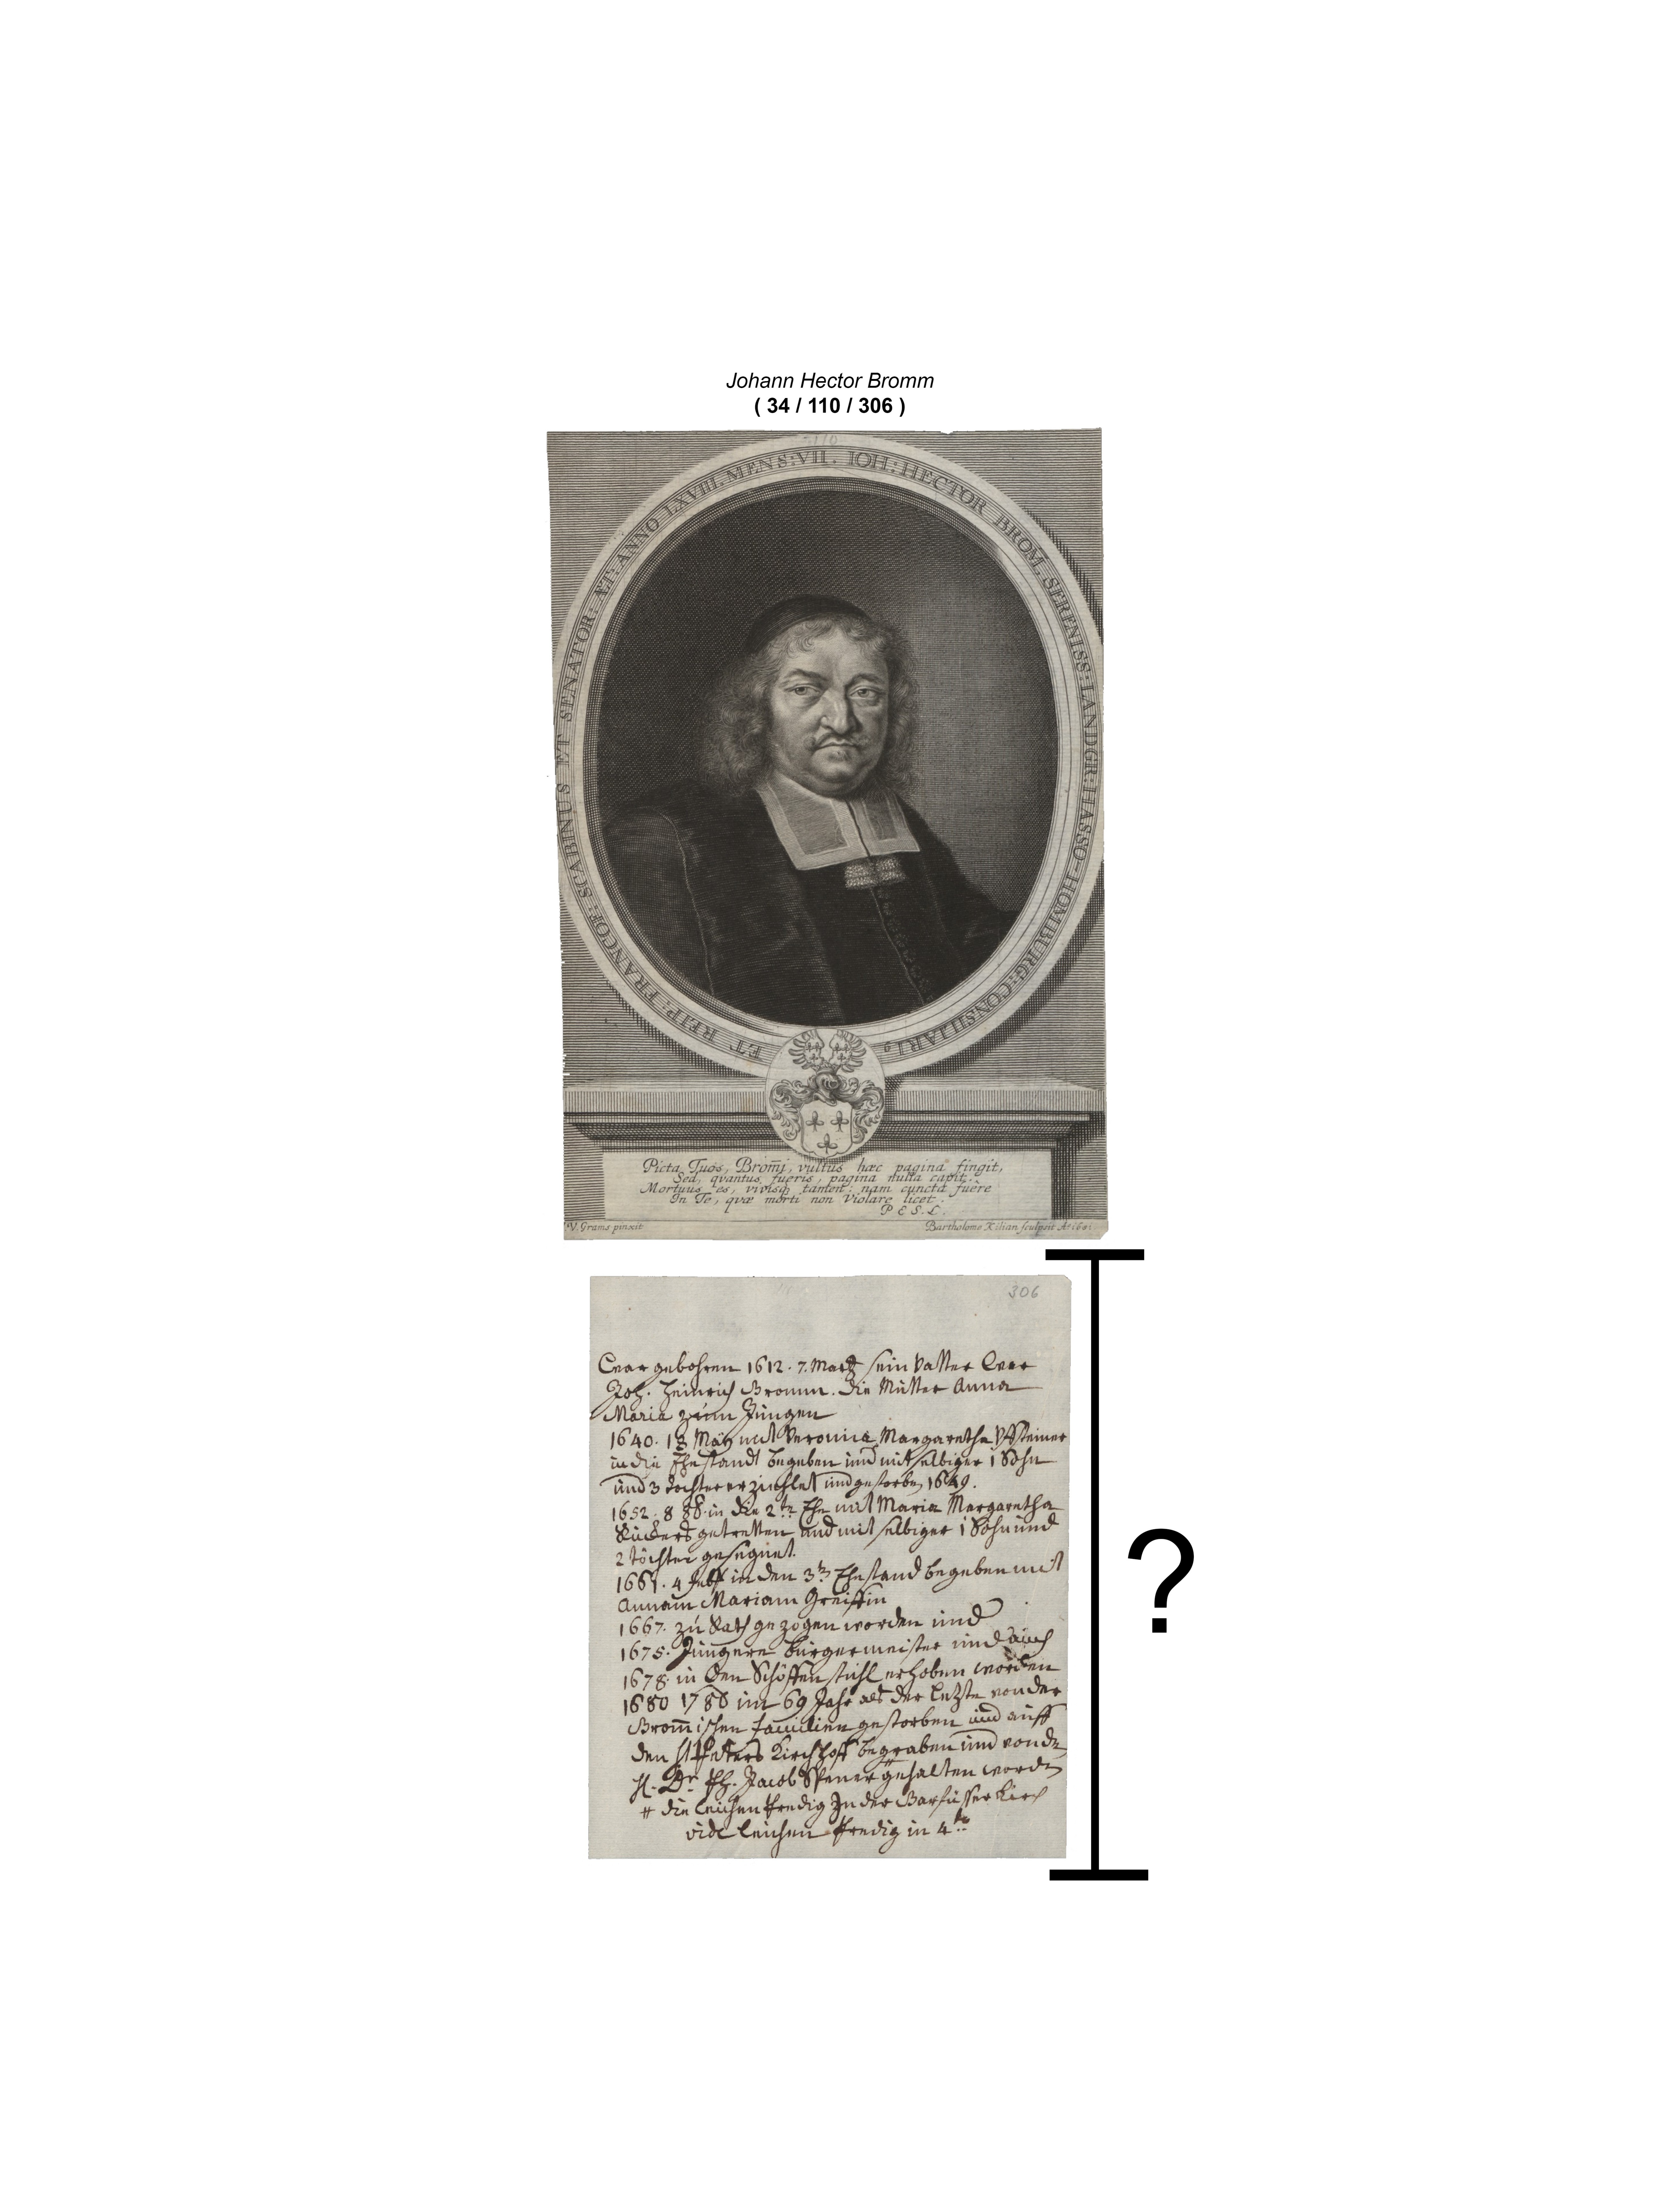 Johann Hector Bromm
( 34 / 110 / 306 )
110
IOH: HECTOR BROM, SERENISS: LANDGR: HASSO-HOMBURG: CONSILIARI9
ET REIP: FRANCOF: SCABINUS ET SENATOR: ÆT: ANNO LXVIII. MENS: VII.
Picta Tuos, Brom̄i, vultus hæc pagina fingit,
Sed, qvantus fueris, pagina nulla capit.
Mortuus es, vivisq tamen: nam cuncta fuêre
In Te, quæ morti non violare licet.
P. E. S. L.
V. Grams pinxit
Bartholome Kilian sculpsit Ao
306
war gebohren 1612. 7. Martz sein Vatter war
Joh. Heinrich Bromm. die Mutter Anna
Maria zum Jungen
1640. 18 May mit Veronica Margaretha Uffsteiner
in die Ehestandt begeben und mit selbiger 1 Sohn
und 3 Tochter erziehlet und gestorben 1649.
1652. 8 in die 2te Ehe mit Maria Margaretha
Rückers getretten und mit selbiger 1 Sohn und
2 Töchter gesegnet.
4 in den 3ten Ehestand begeben mit
Annam Mariam Greiffin
1667. zu Rath gezogen worden und
1675. Jüngere Bürgermeister und auch
1678. in den Schöffenstuhl erhoben worden
1680 im 69 Jahr als der letzte von der
Brom̄ischen Familien gestorben und auff
den St Peters Kirchhoff begraben und von
H. Dr. Ph. Jacob Spener # gehalten worden
# die Leichen Predig In der Barfüsser Kirch
vide Leichen Predig in 4to